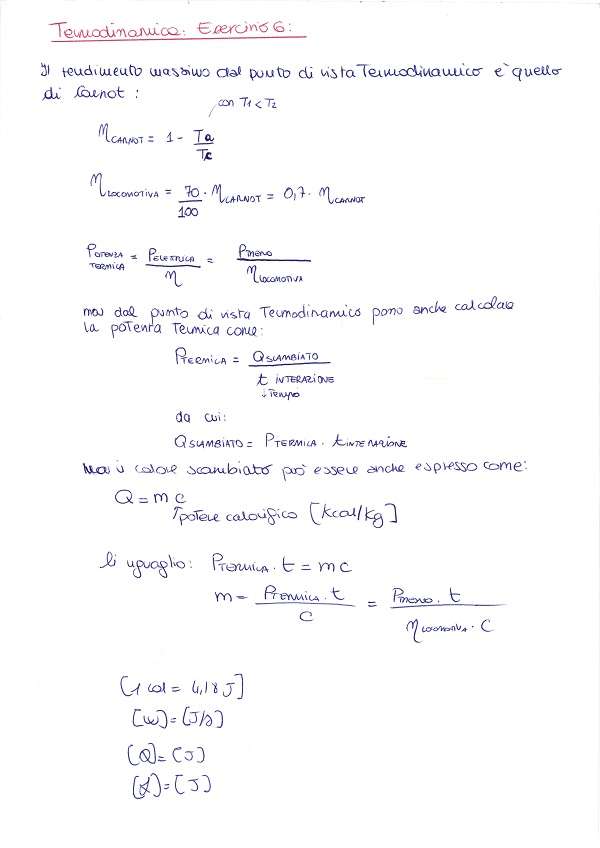 Termodinamica: Esercizio 6:
Il rendimento massimo dal punto di vista Termodinamico è quello
di Carnot :
con T1 < T2
η CARNOT = 1 - Ta / Tc
η LOCOMOTIVA = 70/100 · η CARNOT = 0,7 · η CARNOT
POTENZA TERMICA = P ELETTRICA / η = P TRENO / η LOCOMOTIVA
ma dal punto di vista Termodinamico posso anche calcolare
la potenza Termica come:
P TERMICA = Q SCAMBIATO / t INTERAZIONE
↓ Tempo
da cui:
Q SCAMBIATO = P TERMICA · t INTERAZIONE
Ma il calore scambiato può essere anche espresso come:
Q = m c
↑ potere calorifico [kcal/kg]
li uguaglio: P TERMICA · t = m c
m = P TERMICA · t / C = P TRENO · t / η LOCOMOTIVA · C
[1 cal = 4,18 J]
[W] = [J/s]
[Q] = [J]
[L] = [J]